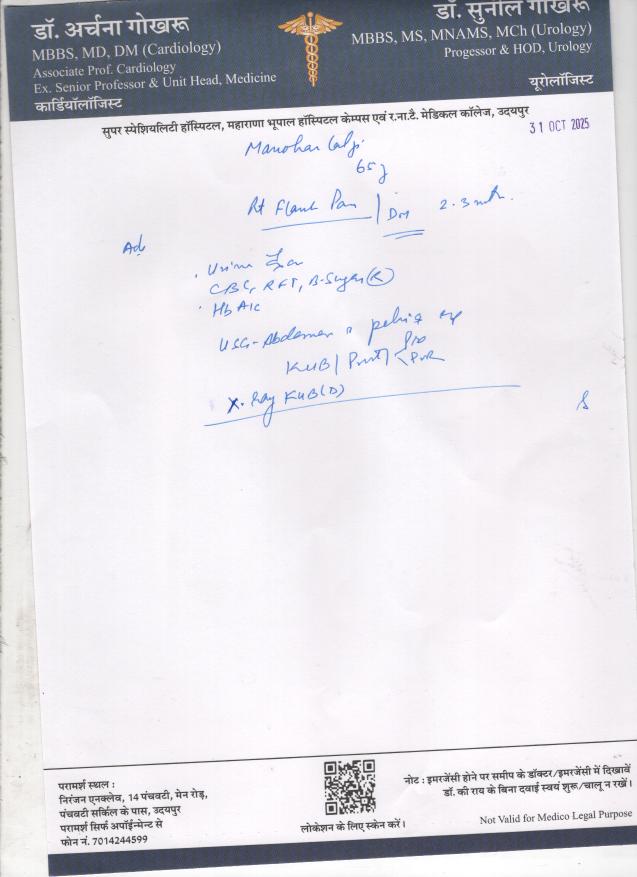 डॉ. अर्चना गोखरू
MBBS, MD, DM (Cardiology)
Associate Prof. Cardiology
Ex. Senior Professor & Unit Head, Medicine
कार्डियॉलॉजिस्ट
डॉ. सुनील गोखरू
MBBS, MS, MNAMS, MCh (Urology)
Progessor & HOD, Urology
यूरोलॉजिस्ट
सुपर स्पेशियलिटी हॉस्पिटल, महाराणा भूपाल हॉस्पिटल केम्पस एवं र.ना.टै. मेडिकल कॉलेज, उदयपुर
31 OCT 2025
Manohar Lalji
65y
Rt Flank Pain | DM 2-3 mth.
Adv
. Urine
CBC, RFT, B-Sugar (R)
. HbA1c
USG-Abdomen pelvis
KUB/ Prost/ PVR
X-Ray KUB (D)
परामर्श स्थल :
निरंजन एनक्लेव, 14 पंचवटी, मेन रोड़,
पंचवटी सर्किल के पास, उदयपुर
परामर्श सिर्फ अपॉईन्मेन्ट से
फोन नं. 7014244599
लोकेशन के लिए स्केन करें।
नोट : इमरजेंसी होने पर समीप के डॉक्टर/इमरजेंसी में दिखावें
डॉ. की राय के बिना दवाई स्वयं शुरू/चालू न रखें।
Not Valid for Medico Legal Purpose